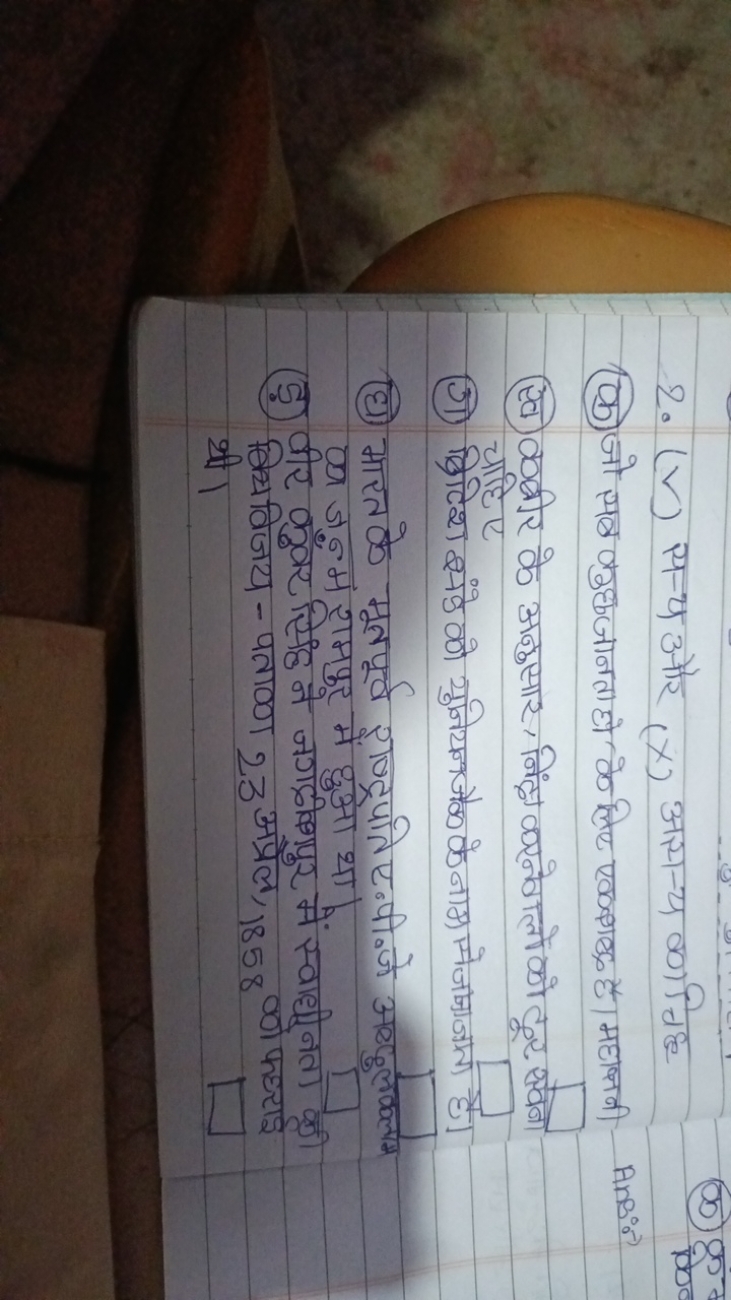 2. (✓) सत्य और (X) असत्य का चिह्न
(क) जो सब कुछ जानता हो, के लिए एक शब्द है, महाज्ञानी
(ख) कबीर के अनुसार, निंदा करनेवालो को दूर रखना
चाहिए
(ग) ब्रिटिश झंडे को यूनियन जैक के नाम से जाना जाता है।
(घ) भारत के भूतपूर्व राष्ट्रपति ए.पी.जे अब्दुल कलाम
का जन्म रामपुर में हुआ था।
(ङ) वीर कुवर सिंह ने जगदीशपुर में स्वाधीनता की
विजय - पताका 23 अप्रैल, 1858 को फहराई
थी।
Ans:-
(क)